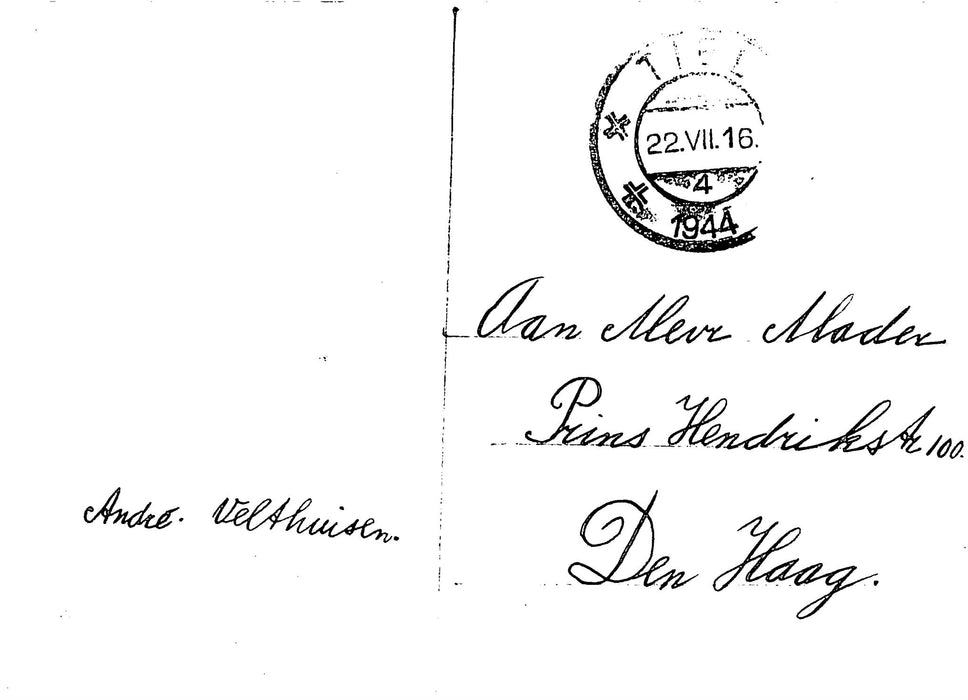 TIEL
22.VII.16.
4
1944
Aan Mevr Mader
Prins Hendrikstr 100.
Den Haag.
André. Velthuisen.